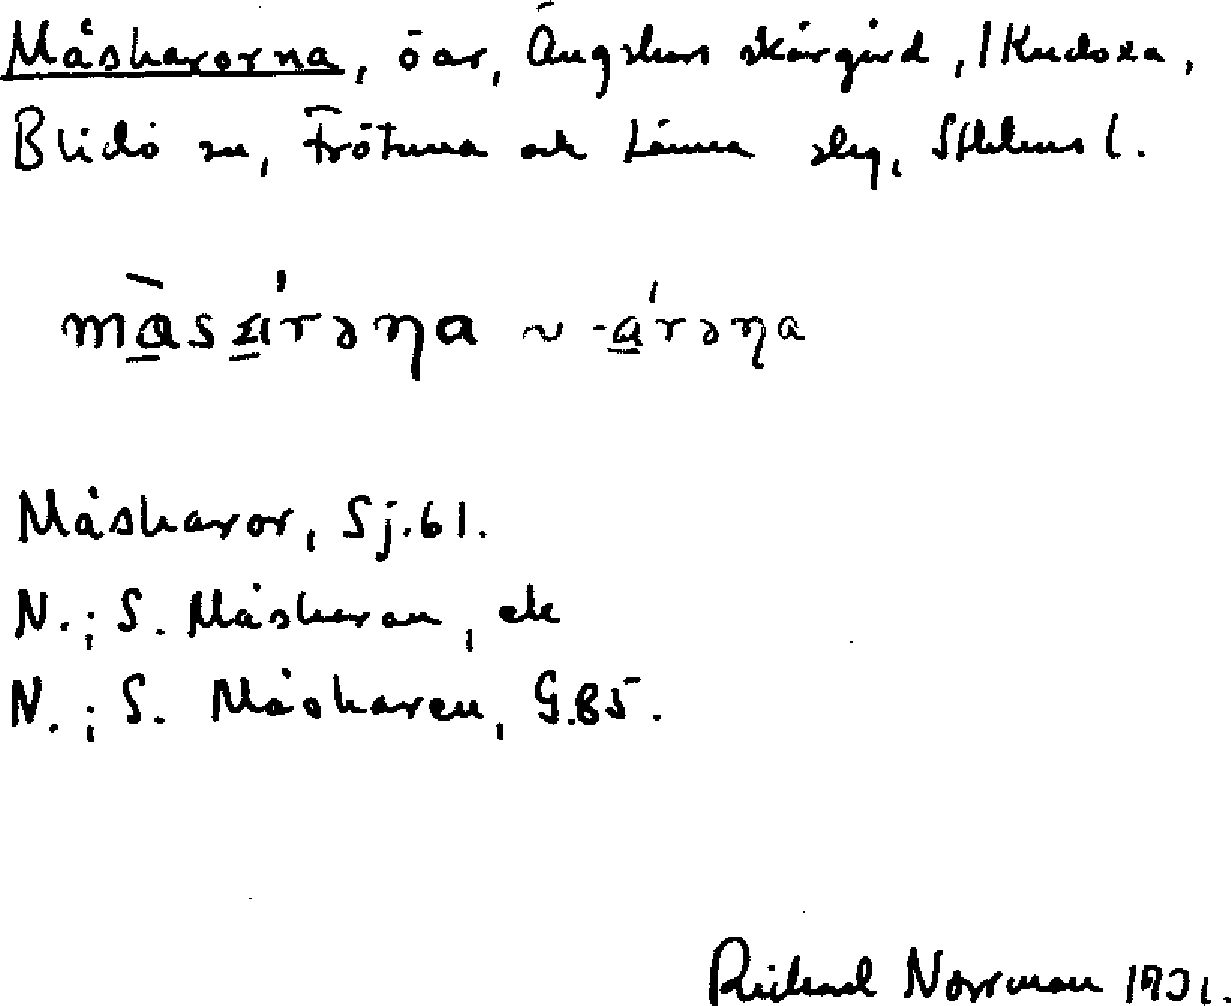 Måskarorna, öar, Ängskärs skärgård, /Kudoxa,
Blidö sn, Frötuna och Länna slg, Sthlms l.
màsᴀ́rəṇa ~ -árəṇa
Måskaror, Sj.61.
N.; S. Måskaran, ek
N.; S. Måskaren, G.85.
Richard Norrman 1931.